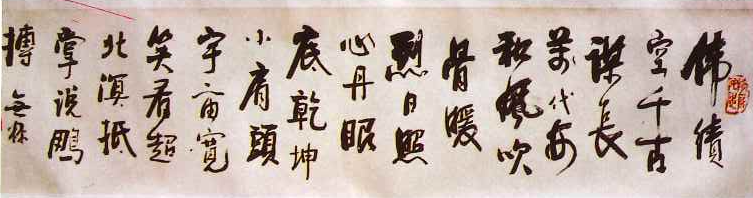 偉績
空千古
謀長
萬代安
和風吹
骨暖
烈日照
心丹眼
底乾坤
小肩頭
宇宙寬
笑看超
北溟抵
掌說鵬
摶無